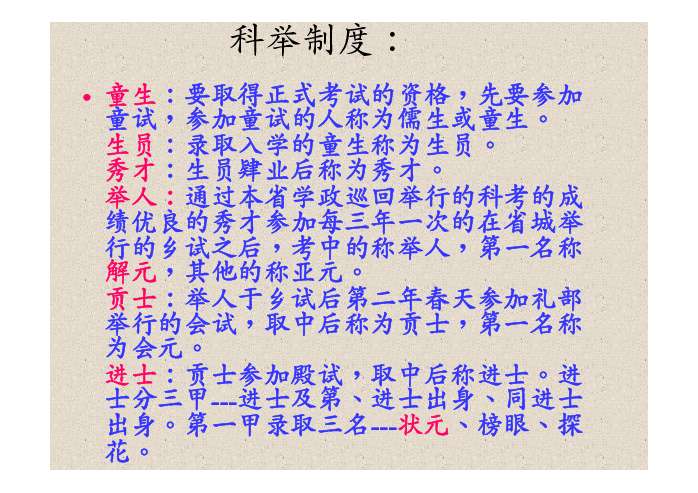 科举制度：
• 童生：要取得正式考试的资格，先要参加
童试，参加童试的人称为儒生或童生。
生员：录取入学的童生称为生员。
秀才：生员肄业后称为秀才。
举人：通过本省学政巡回举行的科考的成
绩优良的秀才参加每三年一次的在省城举
行的乡试之后，考中的称举人，第一名称
解元，其他的称亚元。
贡士：举人于乡试后第二年春天参加礼部
举行的会试，取中后称为贡士，第一名称
为会元。
进士：贡士参加殿试，取中后称进士。进
士分三甲---进士及第、进士出身、同进士
出身。第一甲录取三名---状元、榜眼、探
花。